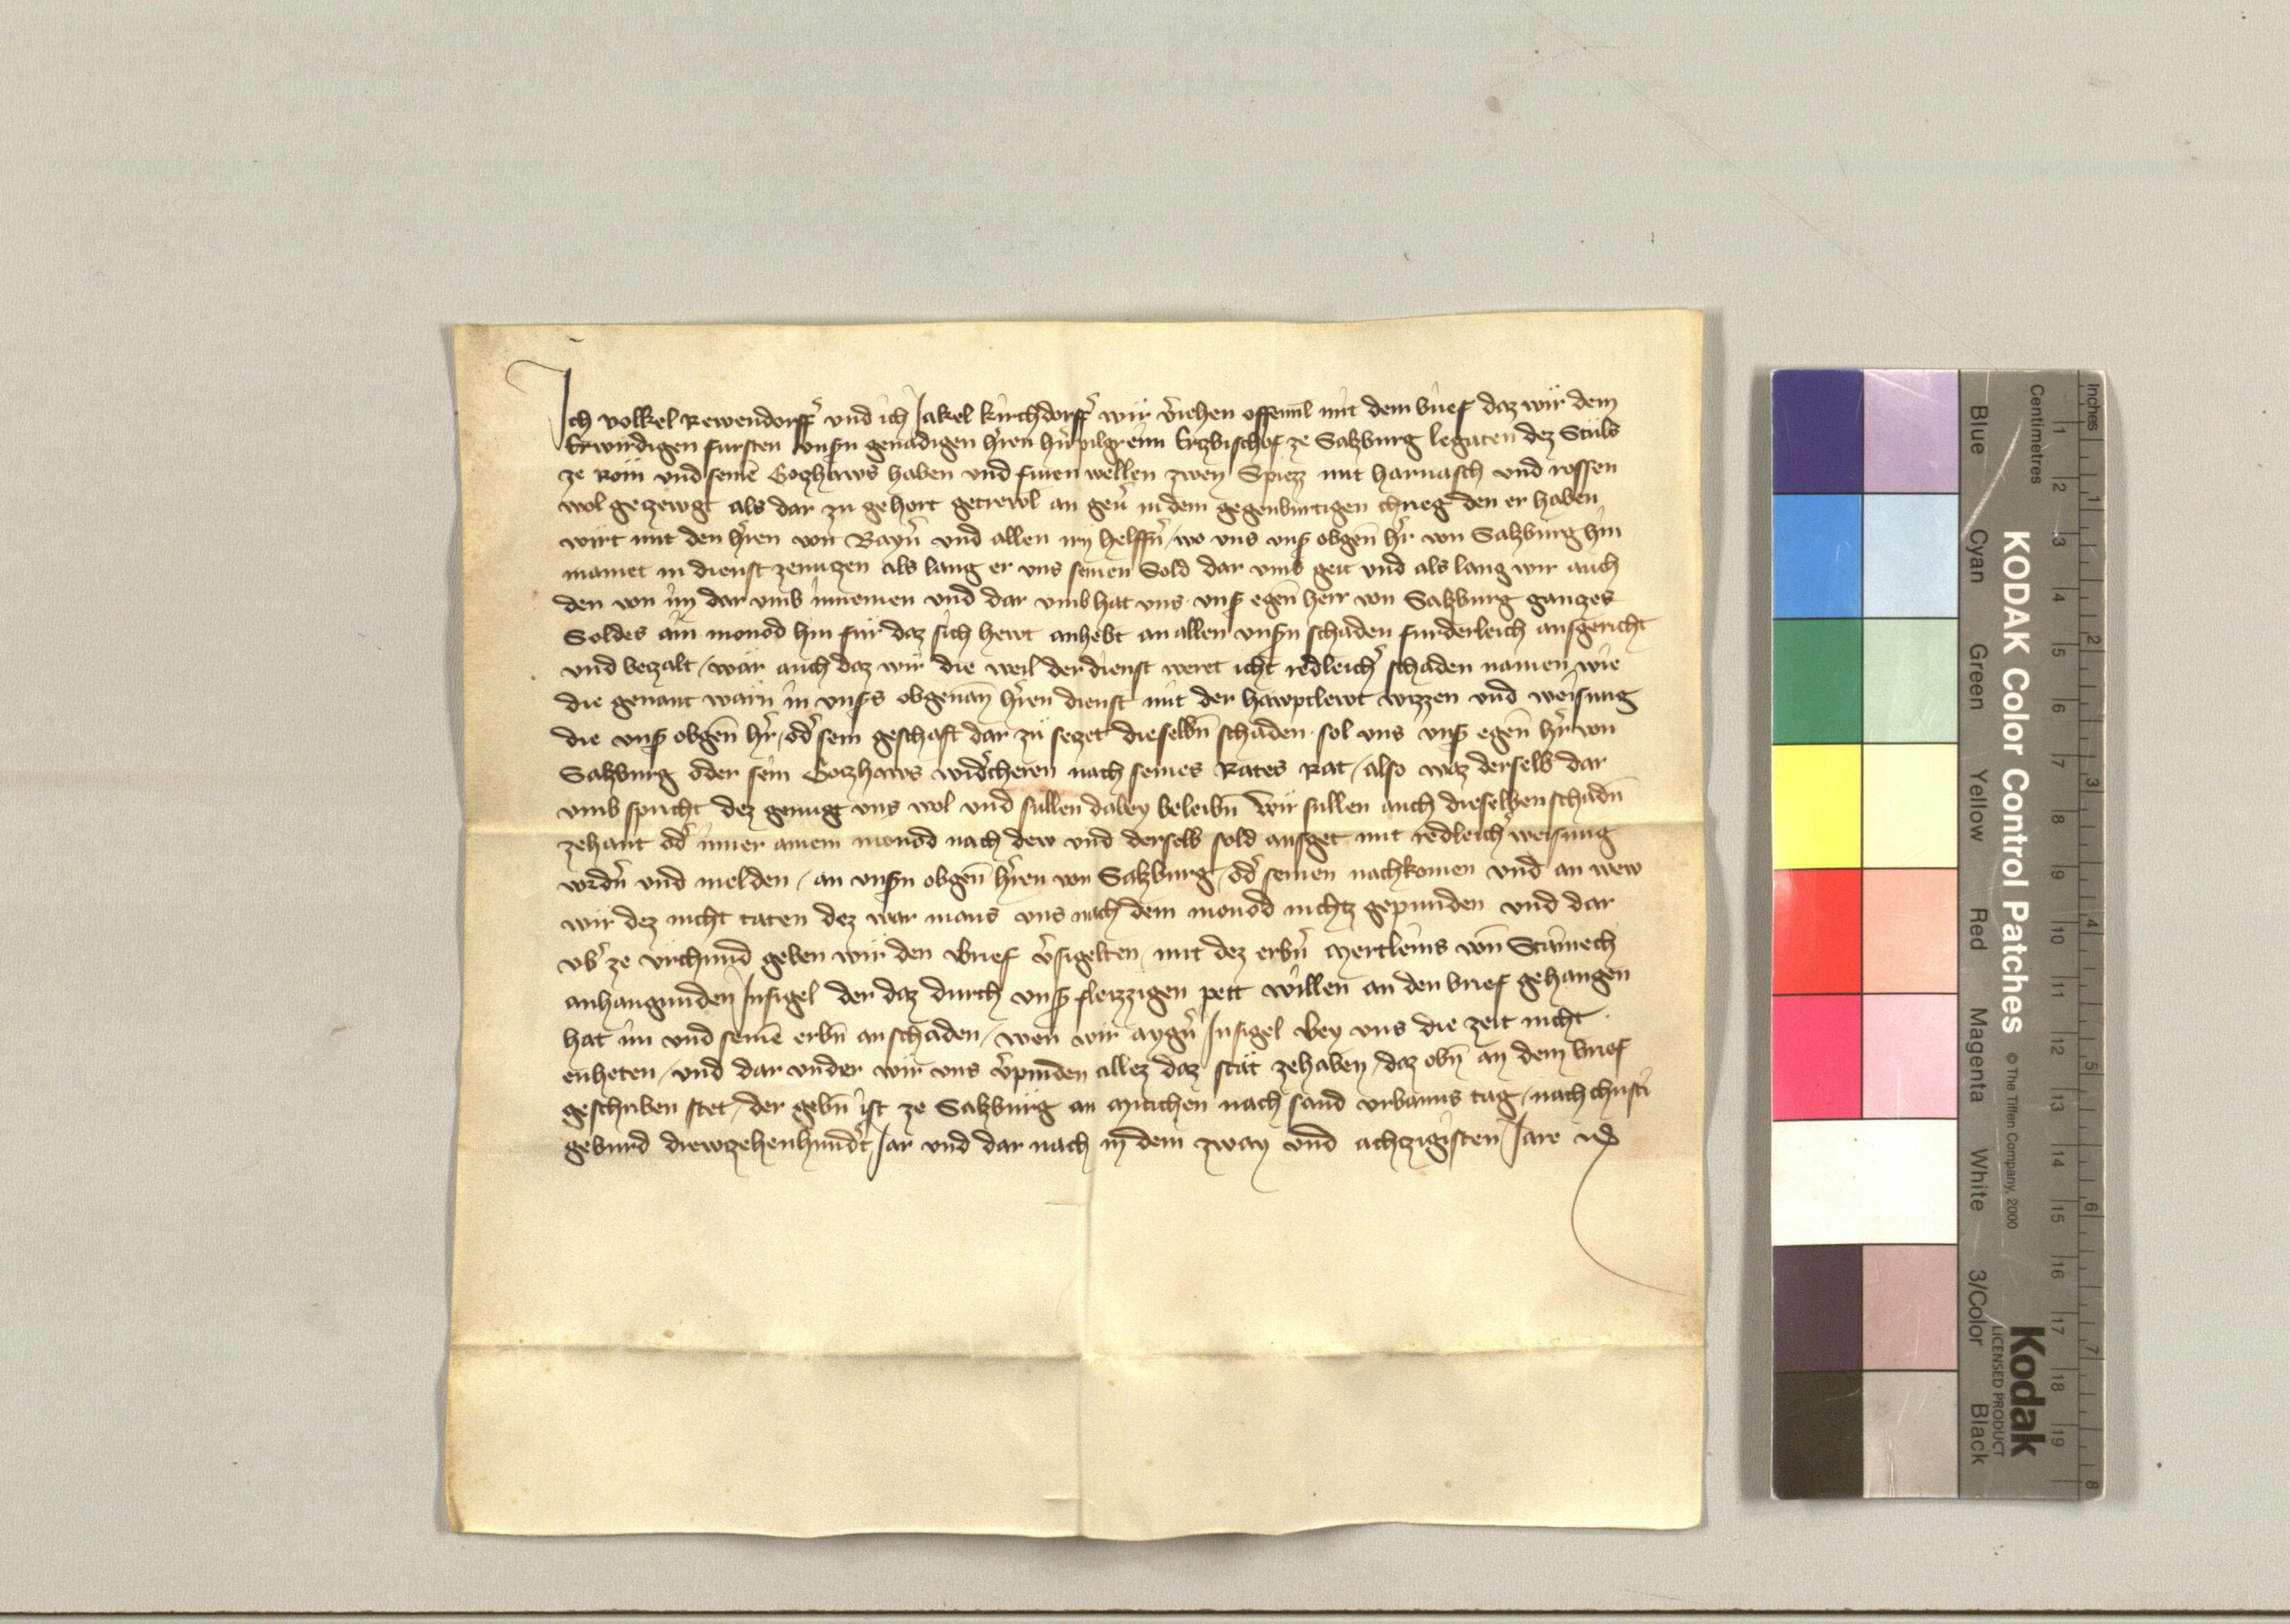 Ich volkel Rewendorffer und ich Jakel kirchdorffer wir v̉iehen offenl̄ mit dem brief daz wir dem
Erwirdigen fursten vnsn̄ genadigen hr̄ren hr̄n pilgreim Erzbischof ze Salzburg legaten dez Stuls
ze Rom und seinē Gotzhaws haben und fuien wellen zwen Spiezz mit harnasch und rossen
wol gezewgt als dar zu gehort getrewl̄ an geũ in dem gegenburtigen chrieg den er haben
wirt mit den hr̄ren von Bayrn̄ und allen irn helffn̄ / wo uns uns̉ obgen̄ hr̄ von Salzburg hin
mainet in dienst zenutzen als lang er uns seinen Sold dar umb geit und als lang wir auch
den von im dar umb innemen und dar umb hat uns uns̉ egen̄ herr von Salzburg ganzes
Soldes ain monod hin für daz sich hewt anhebt an allen unsn̄ schaden furderleich ausgericht
und bezalt / wär auch daz wir die weil der dienst weret icht redleich̉ schaden namen wie
die genant warn in uns̉s obgenan̄ hr̄ren dienst mit der hawptlewt wizzen und weisung
die uns̉ obgen̄ hr̄ / od̉ sein geschaft dar zu setzet dieselbn̄ schaden sol uns uns̉ egen̄ hr̄ von
Salzburg oder sein Gotzhaws wid̉cheren nach seines Rates Rat / also waz derselb dar
umb spricht dez genugt uns wol und sullen dabey beleibn̄ Wir sullen auch dieselben schadn̄
zehant od̉ inner ainem monod nach dew und derselb sold ausget mit redleich̉ weisung
vordn̉ und melden / an unsn̄ obgen̄ hr̄ren von Salzburg / od̉ seinen nachkomen und an wew
wir dez nicht taten dez wär mans uns nach dem monod nichtz gepunden und dar
ub̉ ze urchund geben wir den brief v̉sigelten mit dez erbn̉ Mertleins von Stainech
anhangunden Insigel der daz durch uns̉ fleizzigen pett willen an den brief gehangen
hat im und seinē erbn̄ an schaden / wen wir aygn̉ Insigel bey uns die zeit nicht
enheten / und dar under wir uns v̉pinden allez daz stät zehaben daz obn̄ an dem brief
geschriben stet / der gebn̄ ist ze Salzburg an Mitichen nach sand urbanns tag / nach christi
geburd drewtzehenhundert Jar und dar nach in dem zway und achtzigisten Jare
KODAK Color Control Patches
© The Tiffen Company, 2000
Kodak
LICENSED PRODUCT
Inches 1 2 3 4 5 6 7 8
Centimetres 1 2 3 4 5 6 7 8 9 10 11 12 13 14 15 16 17 18 19
Blue Cyan Green Yellow Red Magenta White 3/Color Black